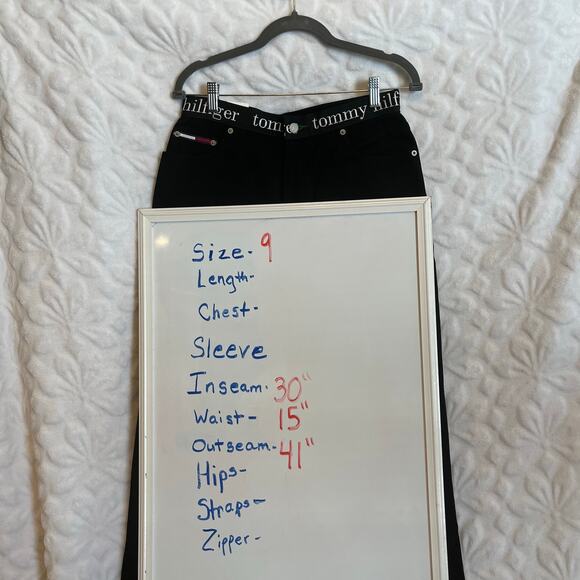 hilfiger tommy tommy hilf
Size- 9
Length-
Chest-
Sleeve
Inseam- 30"
Waist- 15"
Outseam- 41"
Hips-
Straps-
Zipper-